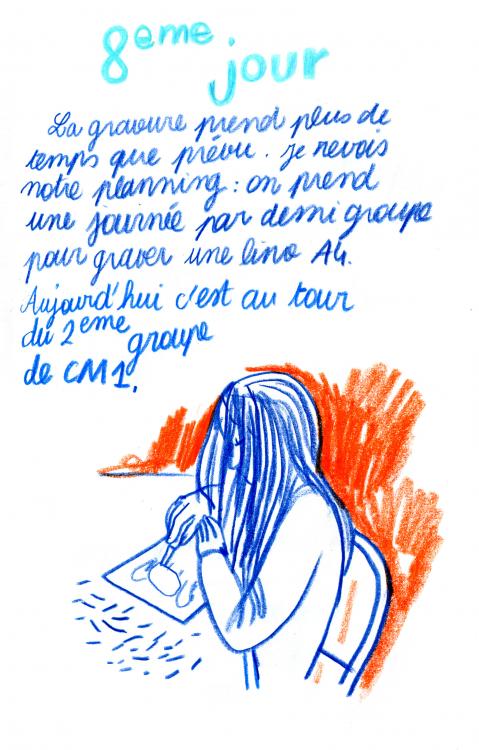 8eme jour
La gravure prend plus de
temps que prévu. Je revois
notre planning : on prend
une journée par demi groupe
pour graver une lino A4.
Aujourd'hui c'est au tour
du 2eme groupe
de CM1.